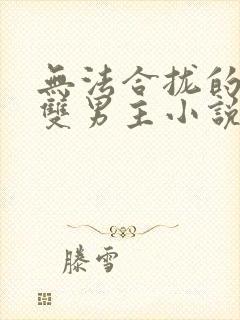 無法合拢的
雙男主小說
滕雪